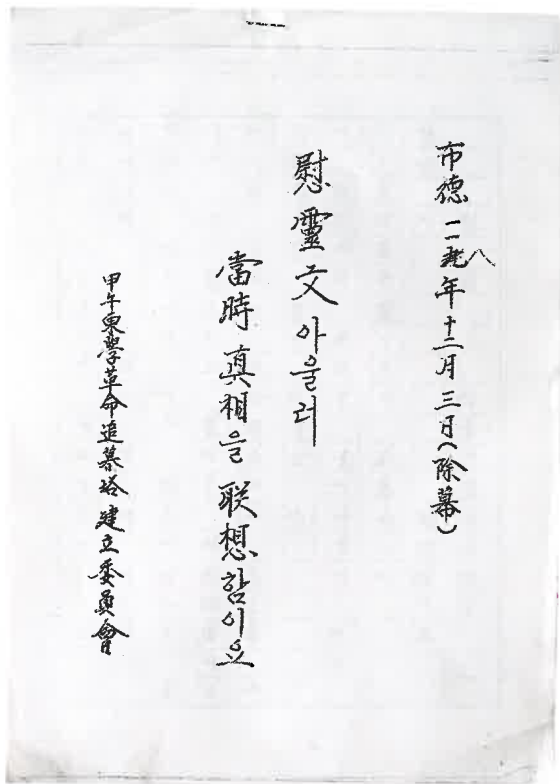 布德 一一八年 十二月 三日(除幕)
慰靈文 아울러
當時 真相을 联想함이오
甲午東學革命追慕塔 建立委員會